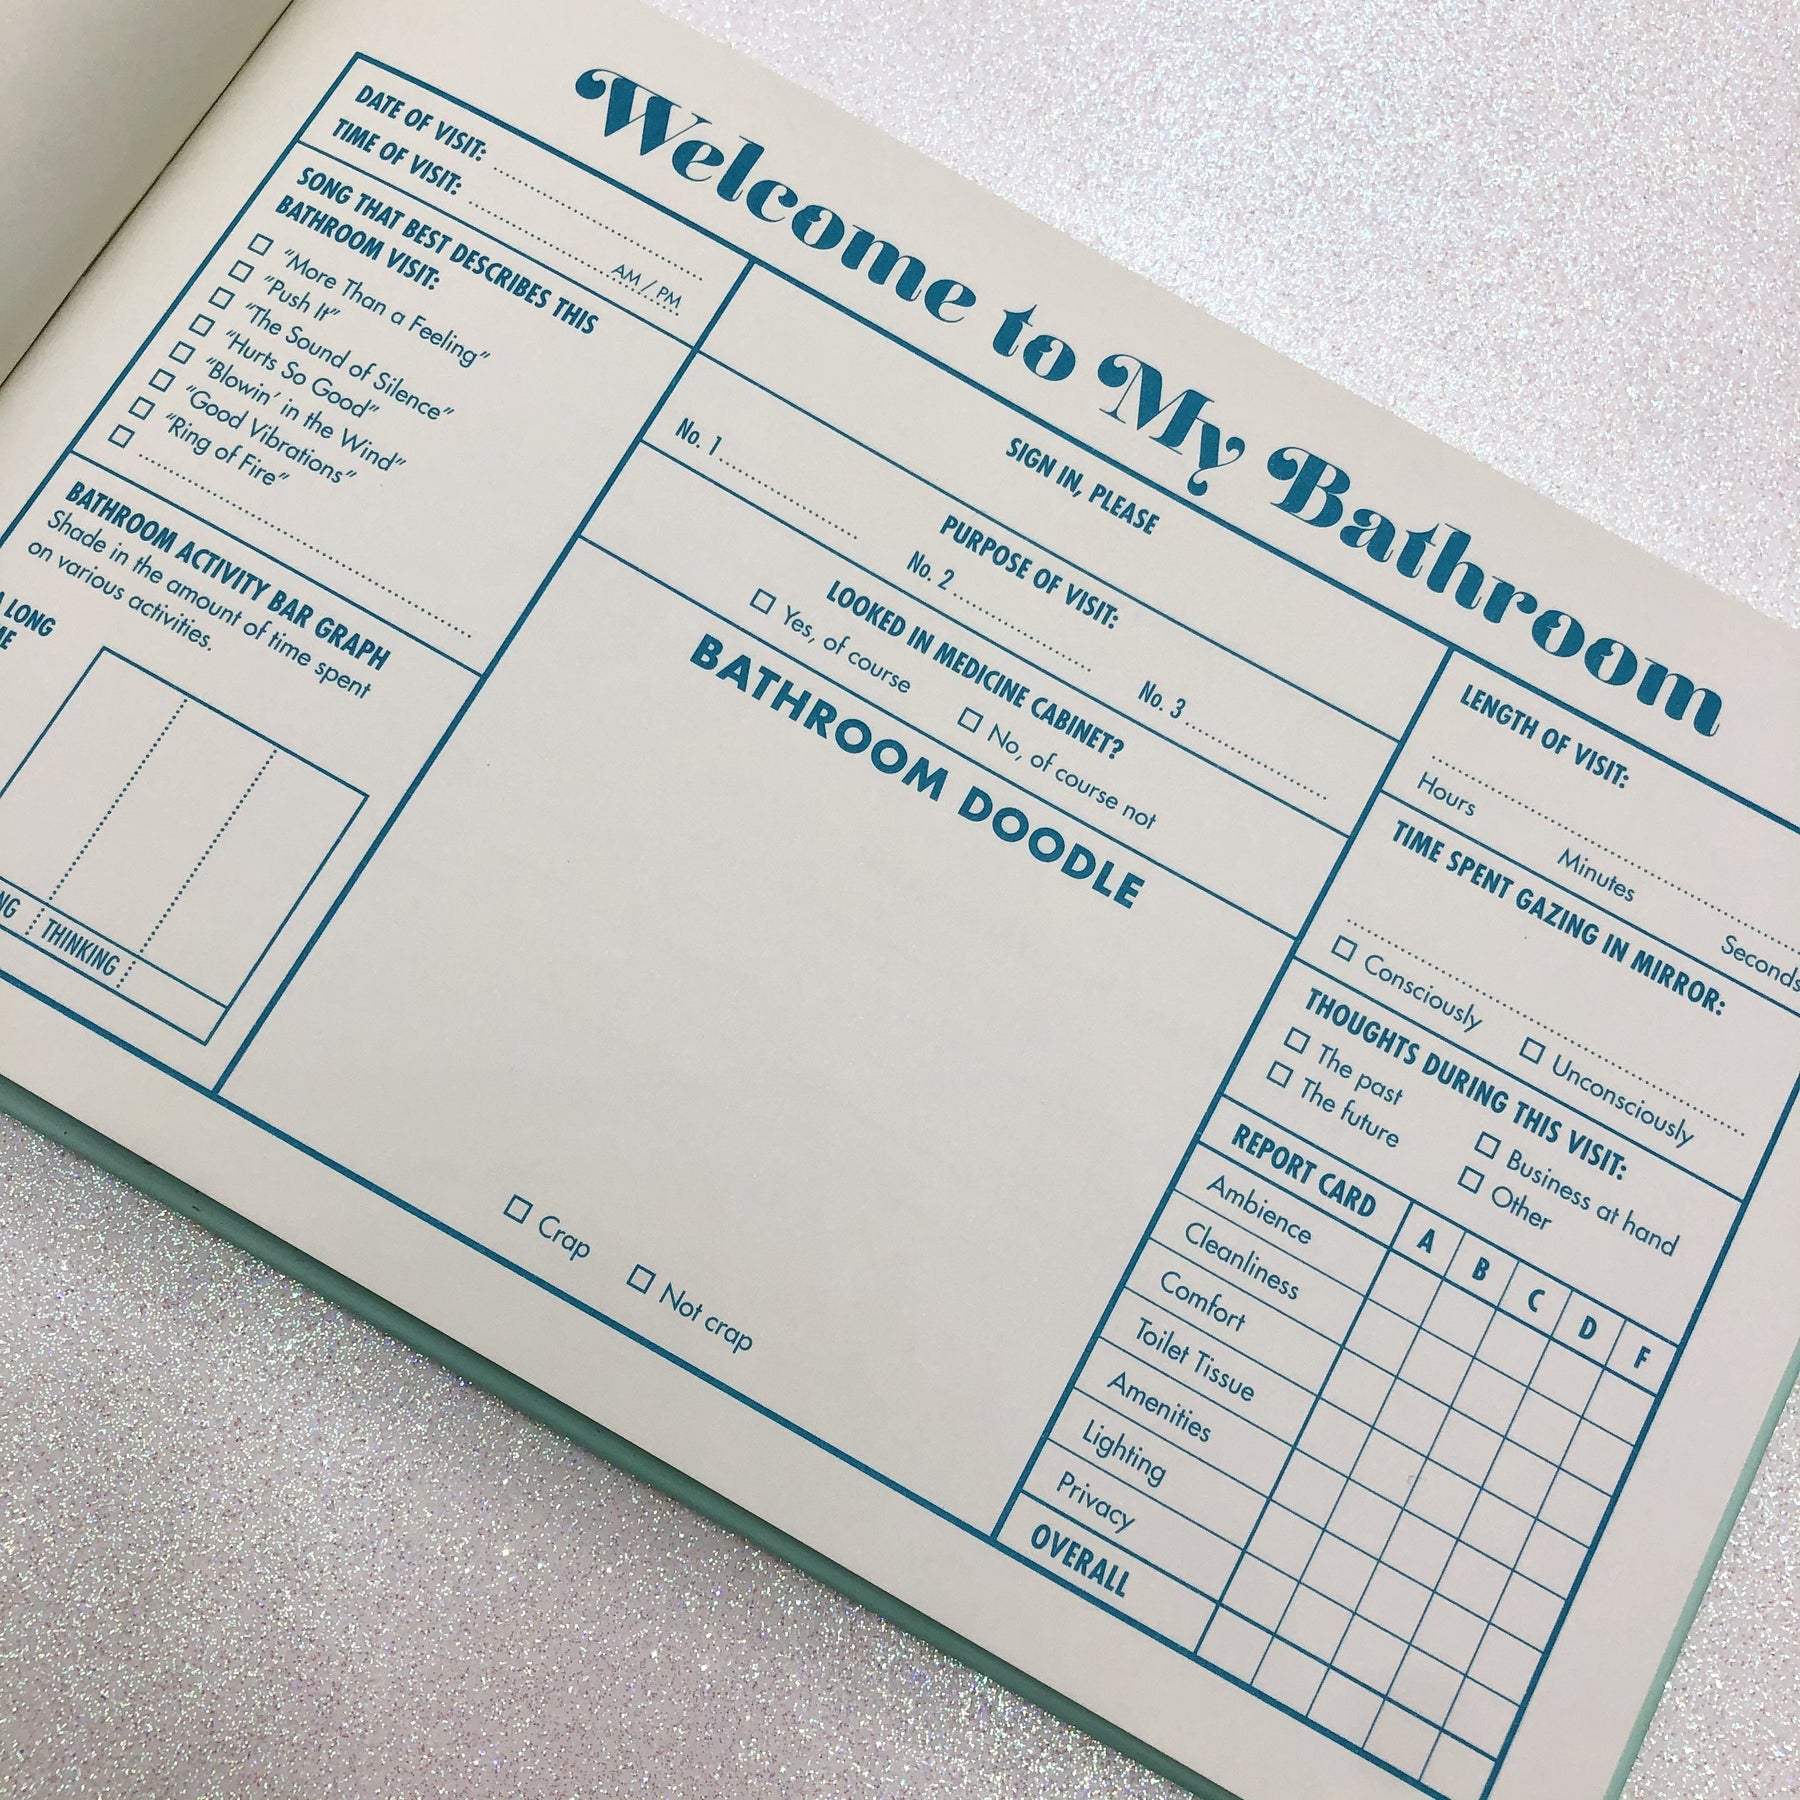 Welcome to My Bathroom
DATE OF VISIT:
TIME OF VISIT:
AM / PM
SONG THAT BEST DESCRIBES THIS
BATHROOM VISIT:
“More Than a Feeling”
“Push It”
“The Sound of Silence”
“Hurts So Good”
“Blowin’ in the Wind”
“Good Vibrations”
“Ring of Fire”
BATHROOM ACTIVITY BAR GRAPH
Shade in the amount of time spent
on various activities.
LONG
THINKING
SIGN IN, PLEASE
PURPOSE OF VISIT:
No. 1 No. 2 No. 3
LOOKED IN MEDICINE CABINET?
Yes, of course No, of course not
BATHROOM DOODLE
Crap Not crap
LENGTH OF VISIT:
Hours Minutes Seconds
TIME SPENT GAZING IN MIRROR:
Consciously Unconsciously
THOUGHTS DURING THIS VISIT:
The past Business at hand
The future Other
REPORT CARD A B C D F
Ambience
Cleanliness
Comfort
Toilet Tissue
Amenities
Lighting
Privacy
OVERALL